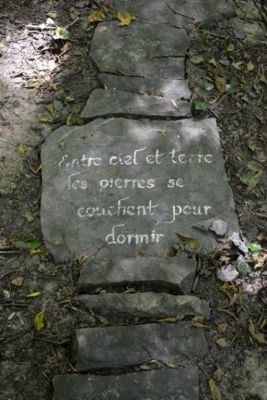 Entre ciel et terre
les pierres se
couchent pour
dormir